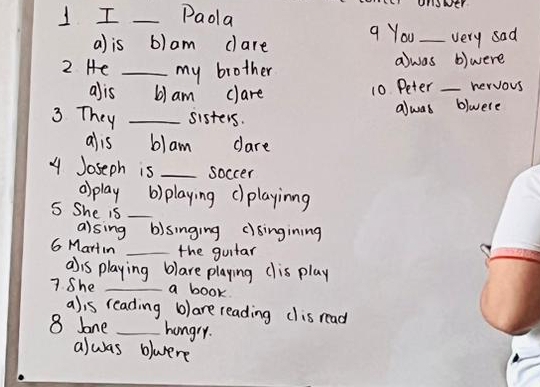 1 I __ Paola
a) is b) am c) are
2 He ____ my brother
a) is b) am c) are
3 They ____ sisters.
a) is b) am c) are
4 Joseph is ___ soccer
a) play b) playing c) playinng
5 She is __
a) sing b) singing c) singining
6 Martin ____ the guitar
a) is playing b) are playing c) is play
7. She ____ a book.
a) is reading b) are reading c) is read
8 Jane ____ hungry.
a) was b) were
answer
9 You ___ very sad
a) was b) were
10. Peter __ nervous
a) was b) were